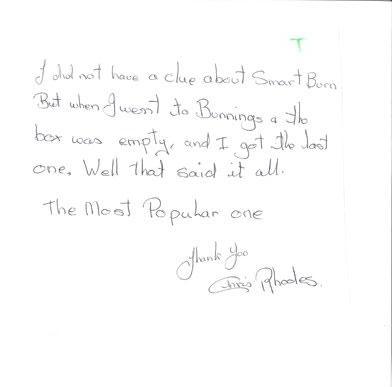 T
I did not have a clue about Smart Burn
But when I went to Bunnings & the
box was empty, and I got the last
one. Well that said it all.
The Most Popular one
Thank You
Chris Rhodes.